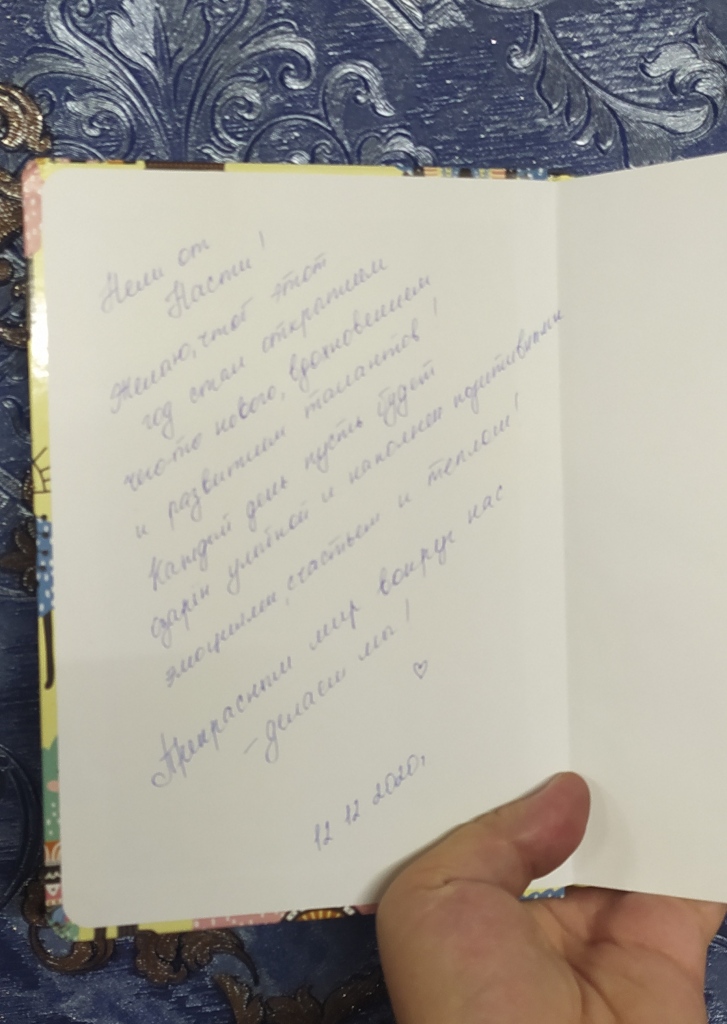 Нели от
Насти!
Желаю, чтоб этот
год стал открытием
чего-то нового, вдохновением
и развитием талантов!
Каждый день пусть будет
озарён улыбкой и наполнен позитивными
эмоциями, счастьем и теплом!
Прекрасным мир вокруг нас
- делаем мы!
♡
12 12 2020г